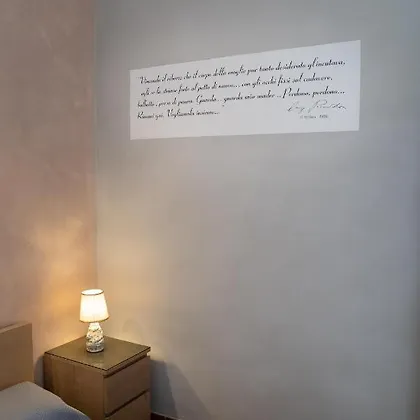 Vincendo il ribrezzo che il corpo della moglie pur tanto desiderato gl'incuteva,
egli se la strinse forte al petto di nuovo... e con gli occhi fissi sul cadavere,
balbettò, pieno di paura: Guarda... guarda mia madre... Perdono, perdono...
Rimani qui. Vegliamola insieme...